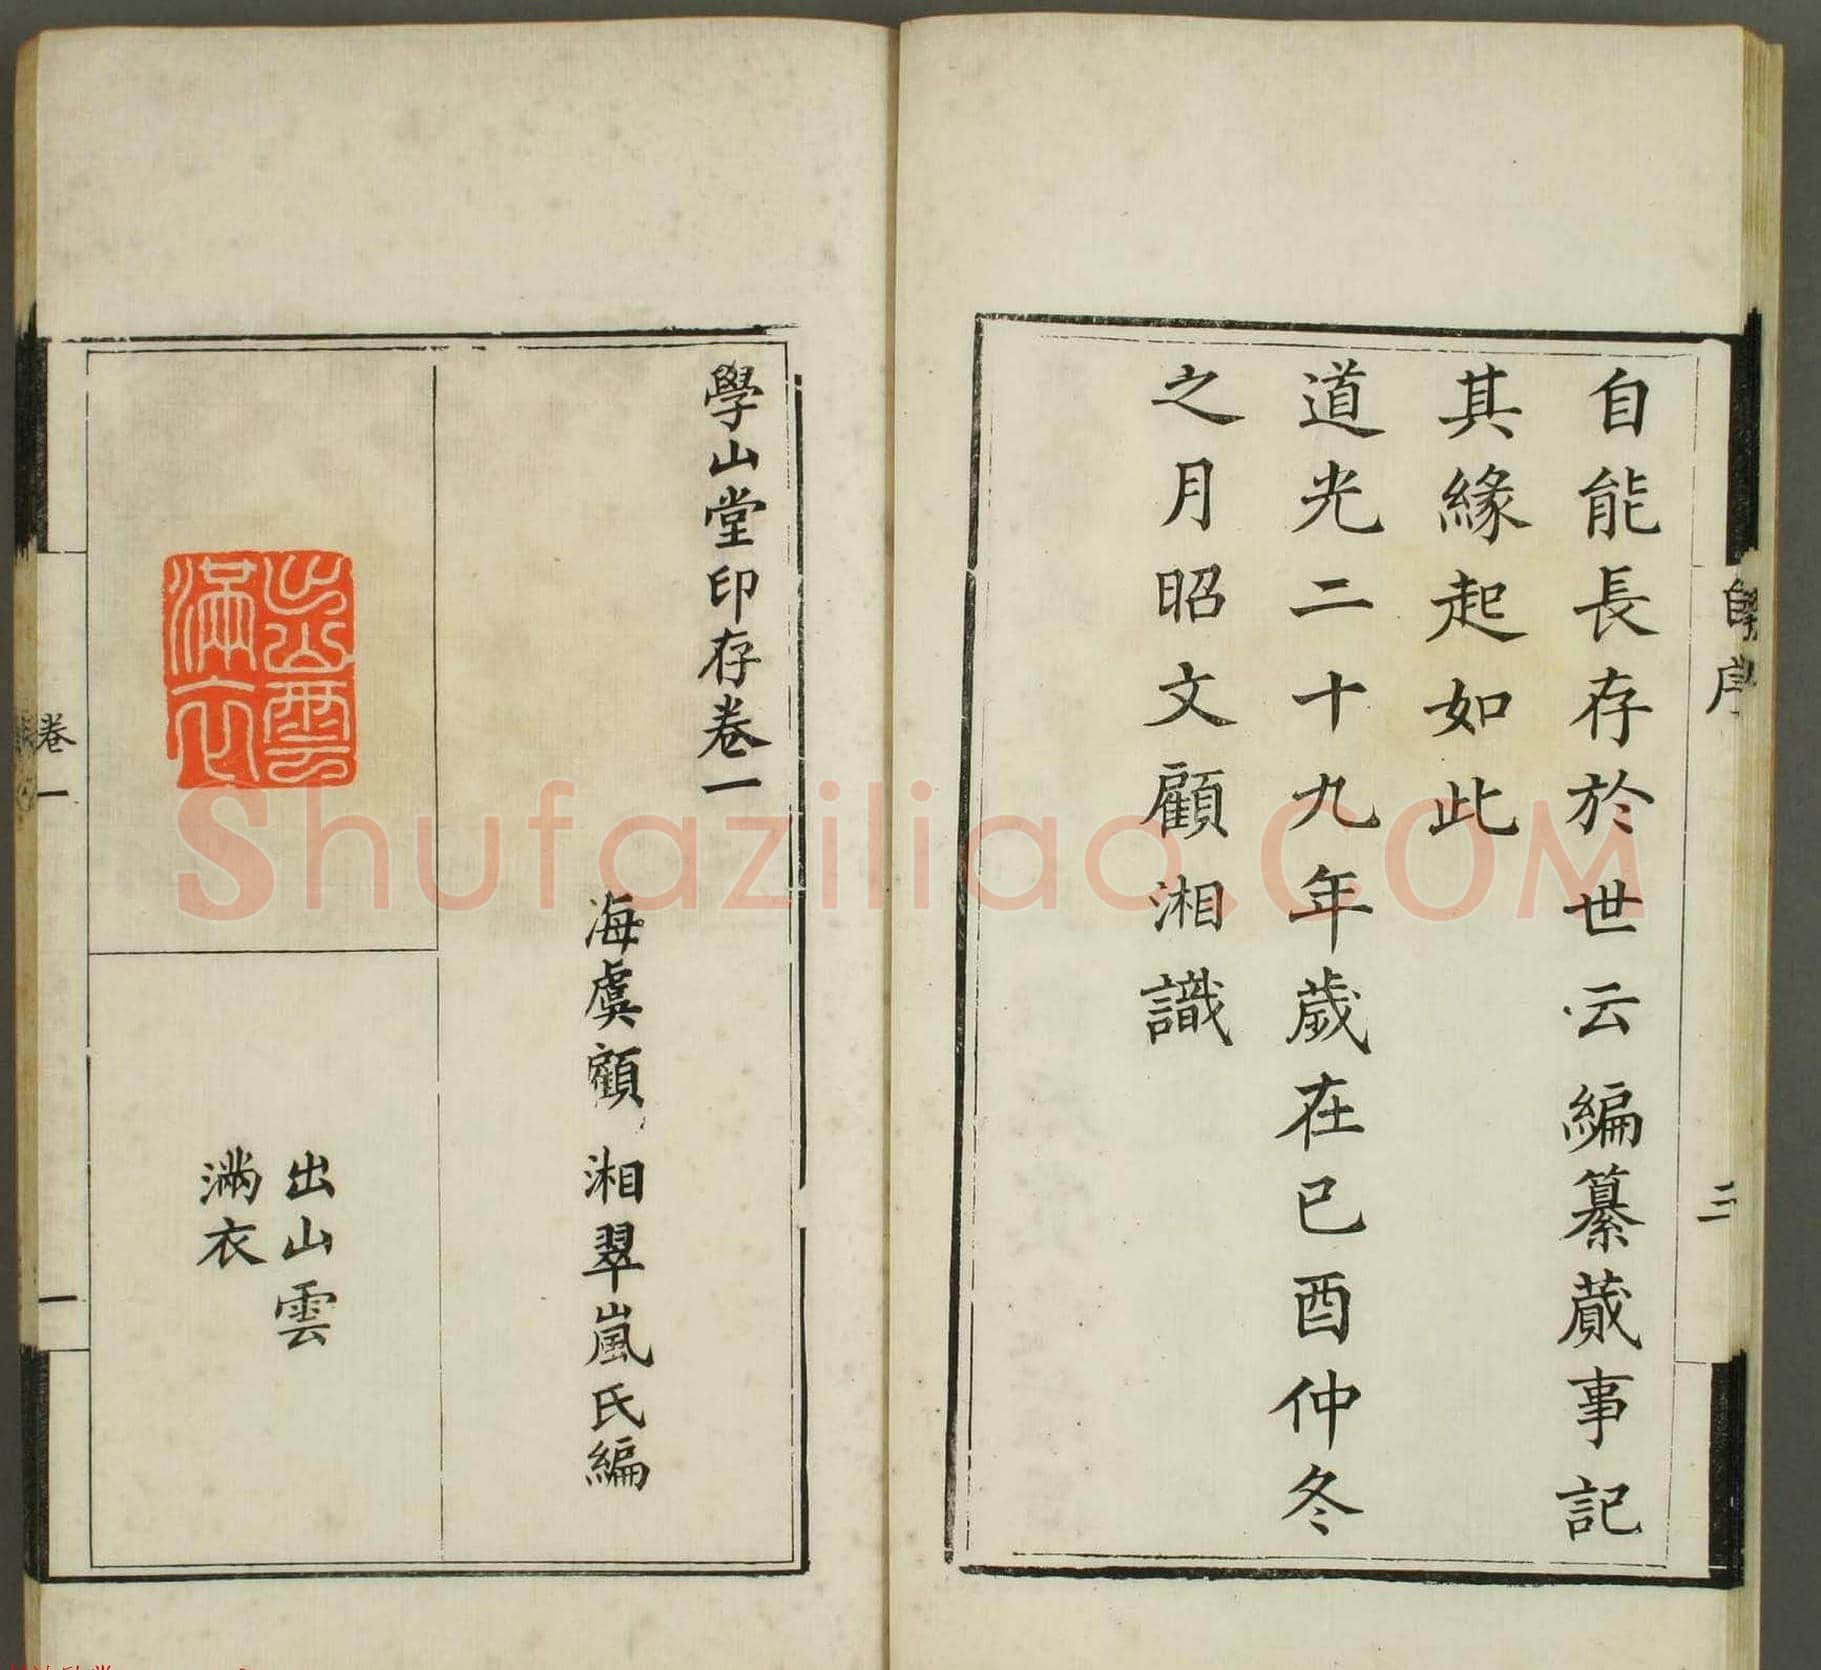 自能長存於世云編纂蕆事記
其緣起如此
道光二十九年歲在已酉仲冬
之月昭文顧湘識
自序
三
學山堂印存卷一
海虞顧湘翠嵐氏編
出山雲
滿衣
出山雲
滿衣
卷一
一
Shufaziliao.COM